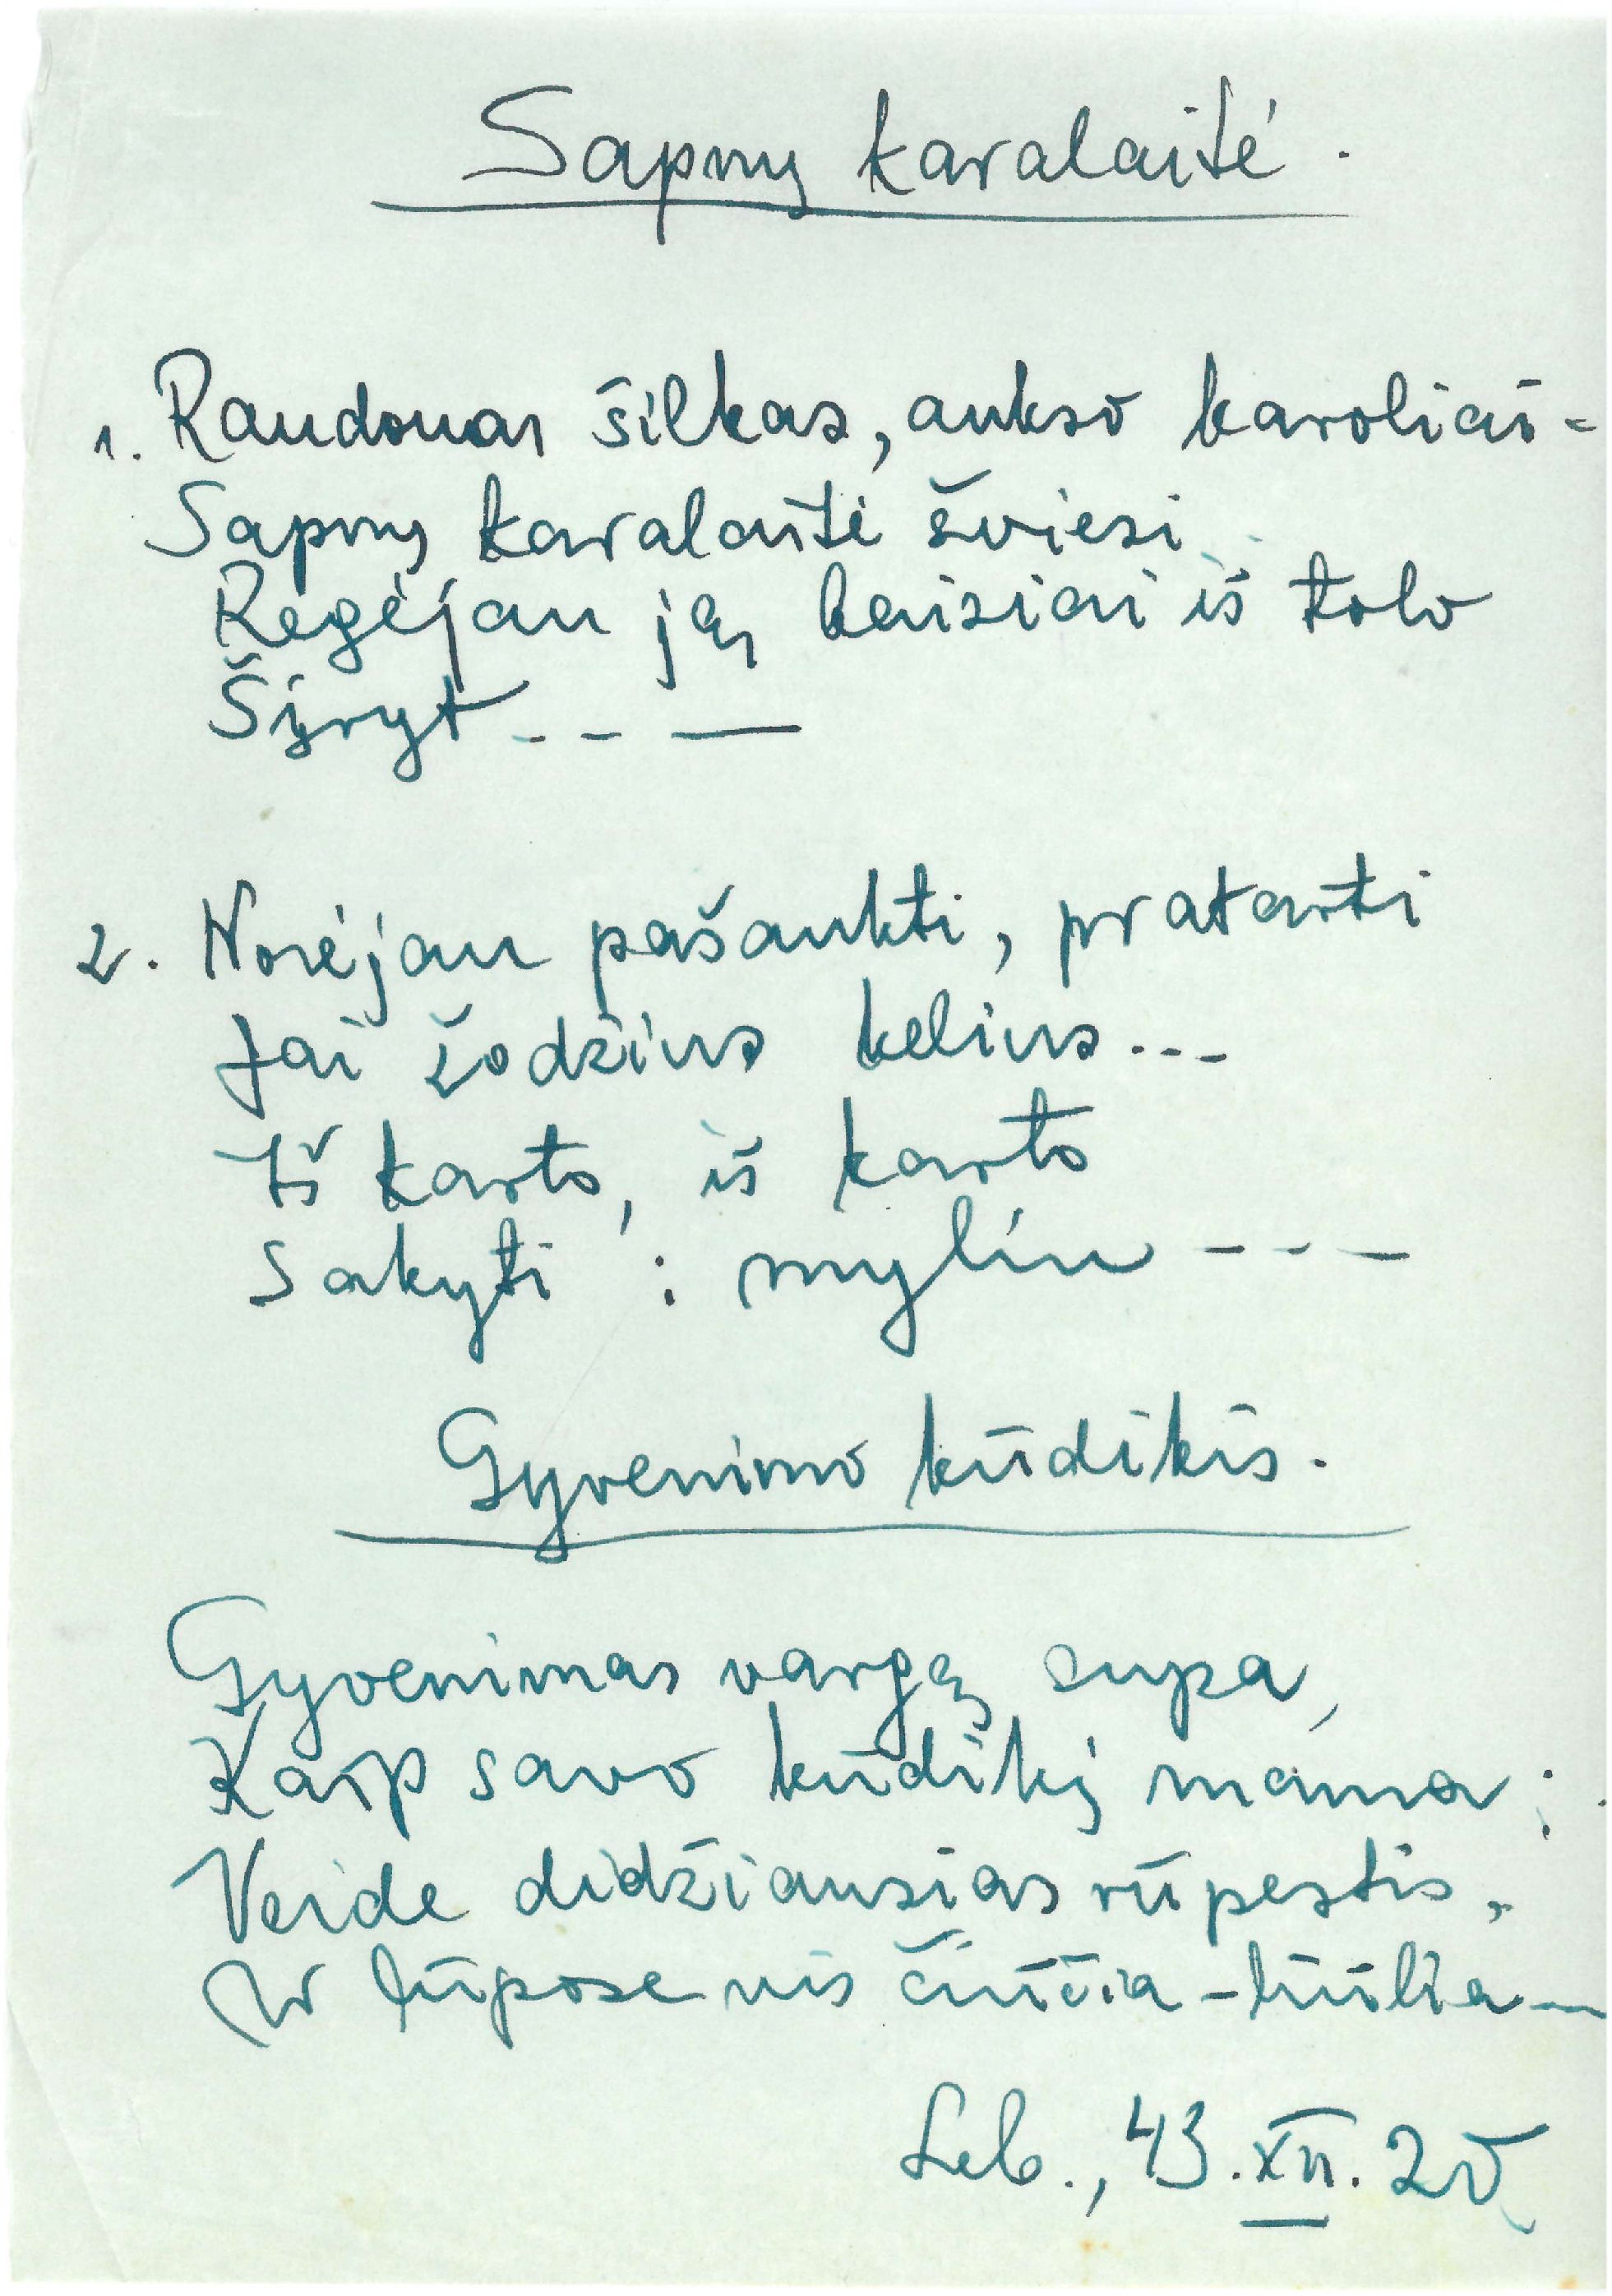 Sapnų karalaitė.
1. Raudonas šilkas, aukso karoliai -
Sapnų karalaitė šviesi
Regėjau ją baisiai iš tolo
Šįryt - - —
2. Norėjau pašaukti, pratarti
Jai žodžius kelius...
Iš karto, iš karto
Sakyti: myliu - - -
Gyvenimo kūdikis.
Gyvenimas vargą supa,
Kaip savo kūdikį mama;
Veide didžiausias rūpestis,
Ir lūpose vis čiūčia-liūlia —
Leb., 43.XII.20